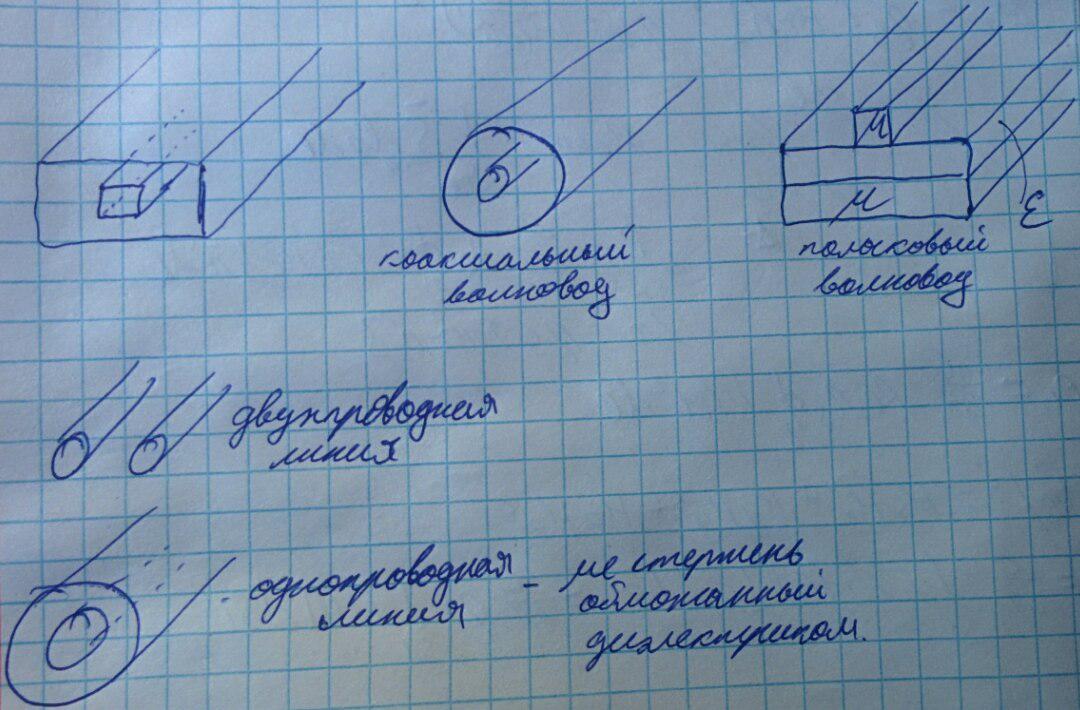 м
м
ε
коаксиальный
волновод
полосковый
волновод
двухпроводная
линия
однопроводная - ме стержень
линия обмотанный
диэлектриком.